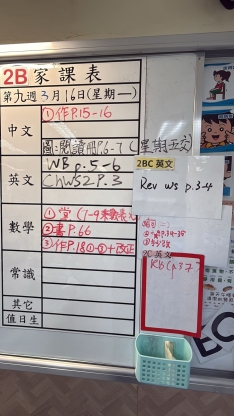 2B 家課表
第九週3月16日(星期一)
中文
①作P.15-16
圖:閱讀冊P.6-7(星期五交)
英文
WB p.5-6
ChWS2 P.3
2BC 英文
Rev ws p.3-4
數學
②書P.66
③作P.18①-③+改正
常識
其它
值日生
2C 英文
Rb(p37)